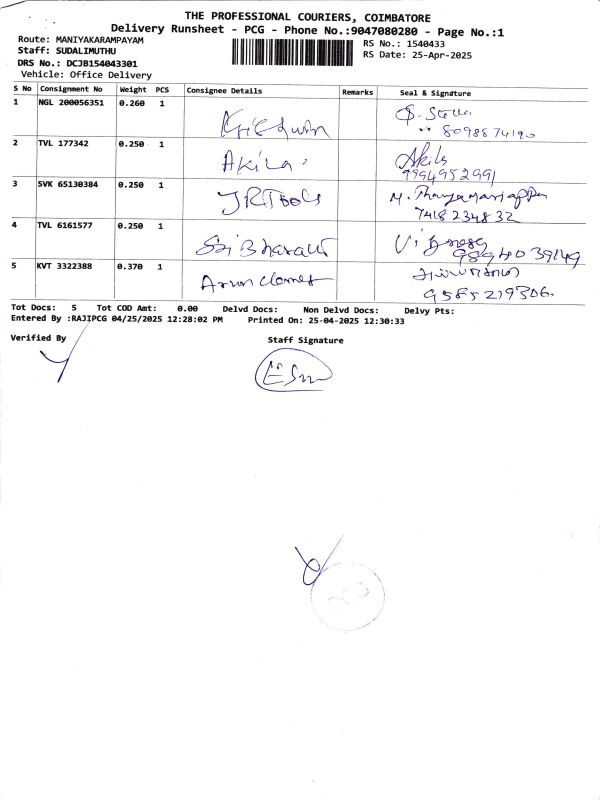 THE PROFESSIONAL COURIERS, COIMBATORE
Delivery Runsheet - PCG - Phone No.:9047080280 - Page No.:1
Route: MANIYAKARAMPAYAM
RS No.: 1540433
Staff: SUDALIMUTHU
RS Date: 25-Apr-2025
DRS No.: DCJB154043301
Vehicle: Office Delivery
S No Consignment No Weight PCS Consignee Details Remarks Seal & Signature
1 NGL 200056351 0.260 1
8098874190
2 TVL 177342 0.250 1 Akila. Akila
9994952991
3 SVK 65130384 0.250 1 JRTools
7418234832
4 TVL 6161577 0.250 1 Sri Bharath
9894039149
5 KVT 3322388 0.370 1 Arun
9585219306.
Tot Docs: 5 Tot COD Amt: 0.00 Delvd Docs: Non Delvd Docs: Delvy Pts:
Entered By :RAJIPCG 04/25/2025 12:28:02 PM Printed On: 25-04-2025 12:30:33
Verified By Staff Signature